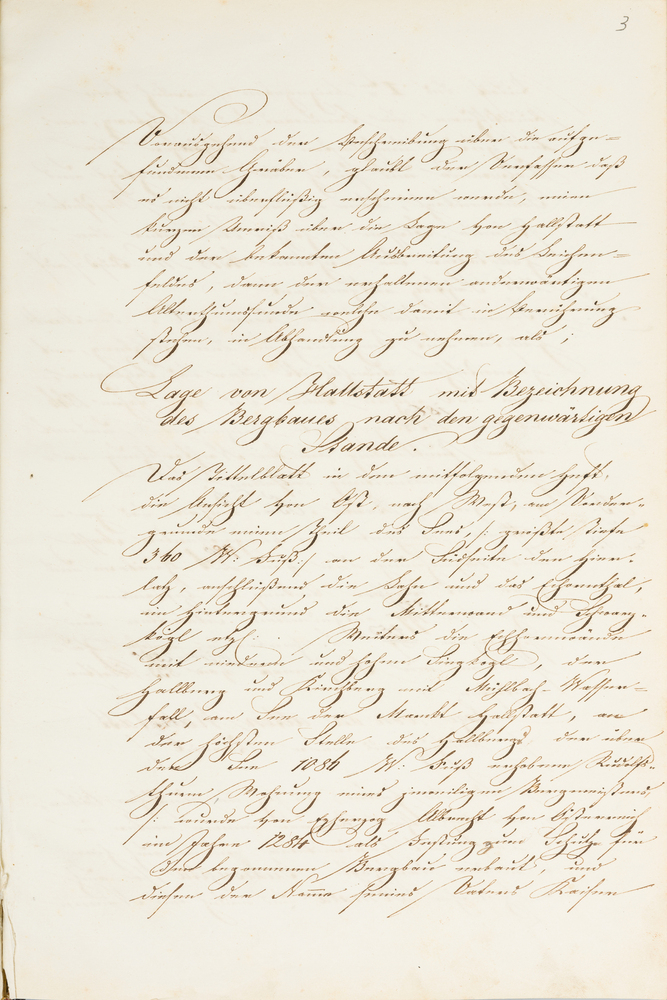 3
Vorausgehend der Beschreibung über die aufge=
fundenen Gräber, glaubt der Verfasser daß
es nicht überflüßig erscheinen werde, einen
kurzen Umriß über die Lage von Hallstatt
und der bekannten Ausbreitung des Leichen=
feldes, dann der erhaltenen anderwärtigen
Alterthumsfunde welche damit in Berührung
stehen, in Abhandlung zu nehmen, als;
Lage von Hallstatt mit Bezeichnung
des Bergbaues nach den gegenwärtigen
Stande.
Das Tittelblatt in dem mitfolgenden Heft,
die Ansicht von Ost, nach West, am Vorder=
grunde einen Theil des Sees, /: größte Tiefe
360 W: Fuß:/ an der Südseite den Hier=
latz, anschlüßend, die Lahn und das Echernthal,
im Hintergrund die Mitterwand und
kögl
Weiters die
mit niedern und hohen Singkogl, der
Hallberg und Kirchberg mit Mühlbach-Wasser=
fall, am See der Markt Hallstatt, an
der höchsten Stelle des Hallbergs der über
den See 1084 W: Fuß erhabene Rudolfs=
thurm, Wohnung eines jeweiligen Bergmeisters
/: wurde von Erzherzog Albrecht von Österreich
im Jahre 1284 als Festung zum Schutze für
den begonnenen Bergbau erbaut, und
diesen der Name seines Vaters Kaiser